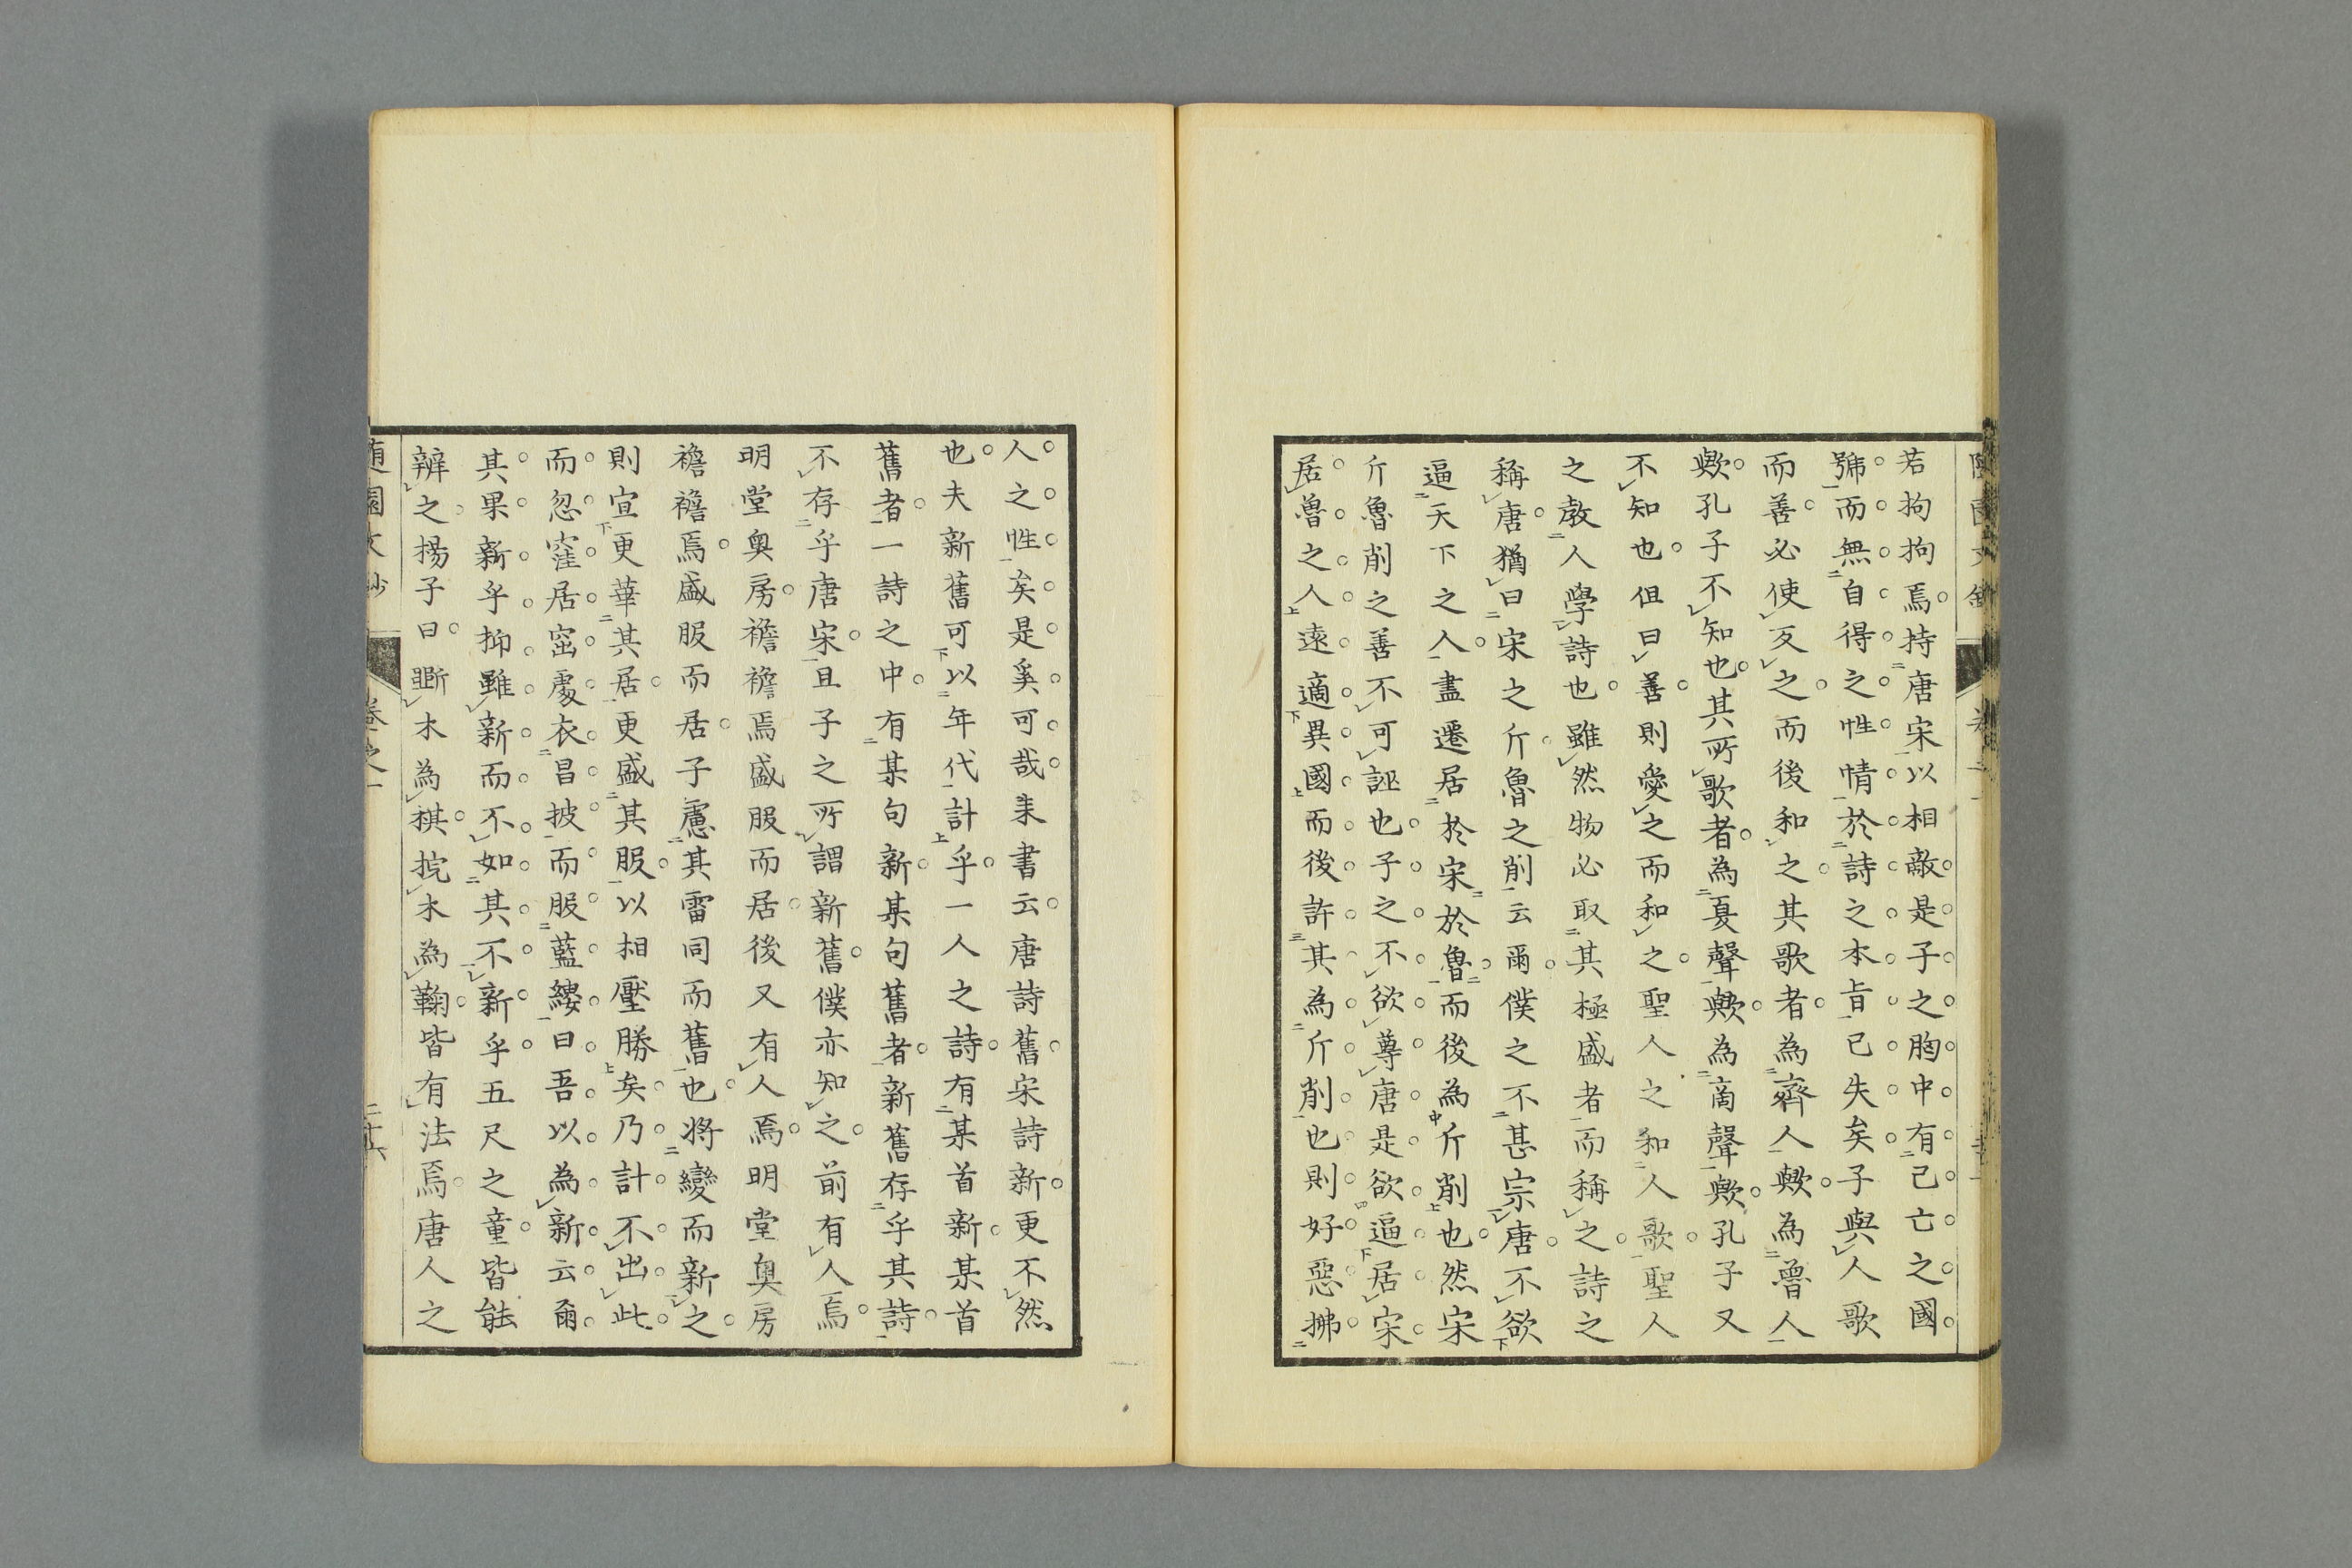 若拘拘焉持唐宋以相敵是子之胸中有己亡之國
號而無自得之性情於詩之本旨已失矣子與人歌
而善必使反之而後和之其歌者為齊人歟為魯人
歟孔子不知也其所歌者為夏聲歟為商聲歟孔子又
不知也但曰善則愛之而和之聖人之和人歌聖人
之教人學詩也雖然物必取其極盛者而稱之詩之
稱唐猶曰宋之斤魯之削云爾僕之不甚宗唐不欲
逼天下之人盡遷居於宋於魯而後為斤削也然宋
斤魯削之善不可誣也子之不欲尊唐是欲逼居宋
居魯之人遠適異國而後許其為斤削也則好惡拂
人之性矣是奚可哉来書云唐詩舊宋詩新更不然
也夫新舊可以年代計乎一人之詩有某首新某首
舊者一詩之中有某句新某句舊者新舊存乎其詩
不存乎唐宋且子之所謂新舊僕亦知之前有人焉
明堂奧房襜襜焉盛服而居後又有人焉明堂奧房
襜襜焉盛服而居子慮其雷同而舊也將變而新之
則宜更華其居更盛其服以相壓勝矣乃計不出此
而忽窪居窋處衣昌披而服藍縷曰吾以為新云爾
其果新乎抑雖新而不如其不新乎五尺之童皆能
辨之揚子曰斷木為棋捖木為鞠皆有法焉唐人之
隨園文鈔 卷之一 二十六